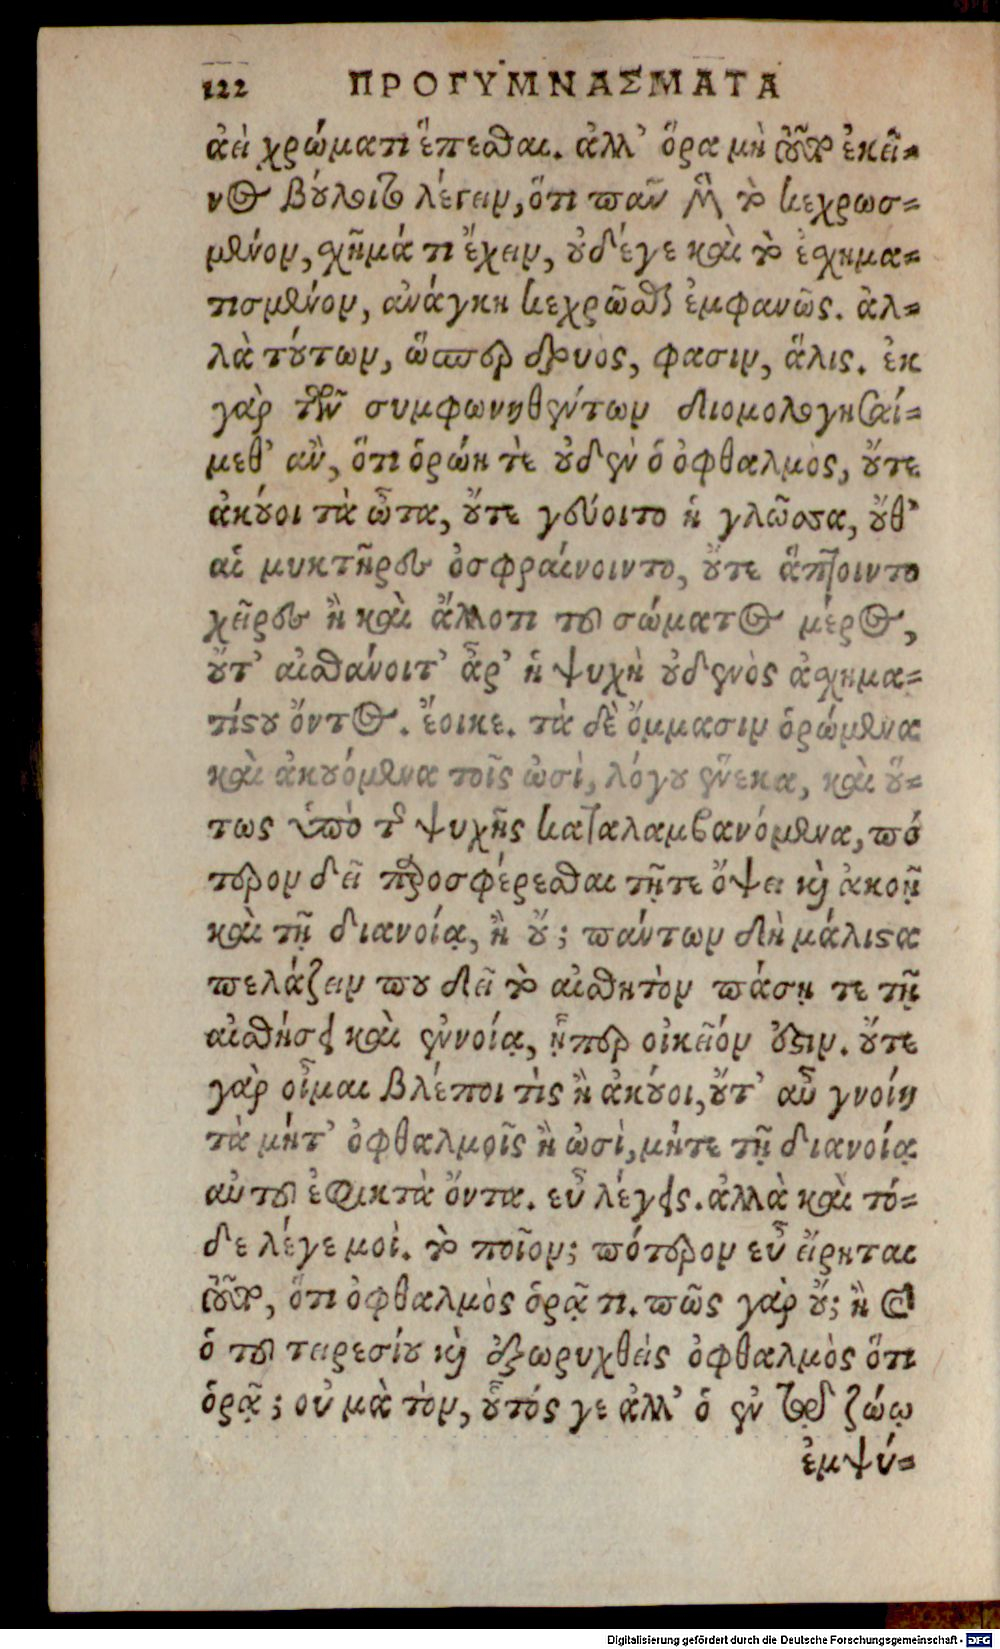 122 ΠΡΟΓΥΜΝΑΣΜΑΤΑ
ἀεὶ χρώματι ἕπεσθαι. ἀλλ' ὅρα μὴ τοῦτ' ἐκεῖ-
νος βούλοιτο λέγειν, ὅτι πᾶν μὲν τὸ κεχρωσ-
μένον, σχῆμά τι ἔχειν, οὐδέγε καὶ τὸ ἐσχημα-
τισμένον, ἀνάγκη κεχρῶσθαι ἐμφανῶς. ἀλ-
λὰ τούτων, ὥσπερ δρυὸς, φασιν, ἅλις. ἐκ
γὰρ τῶν συμφωνηθέντων διομολογησαί-
μεθ' ἂν, ὅτι ὁρῴη τὲ οὐδὲν ὁ ὀφθαλμὸς, οὔτε
ἀκούοι τὰ ὦτα, οὔτε γεύοιτο ἡ γλῶσσα, οὔθ'
αἱ μυκτῆρες ὀσφραίνοιντο, οὔτε ἅπτοιντο
χεῖρες ἢ καὶ ἄλλοτι τοῦ σώματος μέρος,
οὔτ' αἰσθάνοιτ' ἆρ' ἡ ψυχὴ οὐδενὸς ἀσχημα-
τίστου ὄντος. ἔοικε. τὰ δὲ ὄμμασιν ὁρώμενα
καὶ ἀκουόμενα τοῖς ὠσὶ, λόγου ἕνεκα, καὶ οὕ-
τως ὑπὸ τῆς ψυχῆς καταλαμβανόμενα, πό
τερον δεῖ προσφέρεσθαι τῇτε ὄψει καὶ ἀκοῇ
καὶ τῇ διανοίᾳ, ἢ οὔ; πάντων δὴ μάλιστα
πελάζειν που δεῖ τὸ αἰσθητὸν πάσῃ τε τῇ
αἰσθήσει καὶ ἐννοίᾳ, ᾗπερ οἰκεῖόν ἐστιν. οὔτε
γὰρ οἶμαι βλέποι τὶς ἢ ἀκούοι, οὔτ' αὖ γνοίη
τὰ μήτ' ὀφθαλμοῖς ἢ ὠσὶ, μήτε τῇ διανοίᾳ
αὐτοῦ ἐφικτὰ ὄντα. εὖ λέγεις. ἀλλὰ καὶ τό-
δε λέγε μοὶ. τὸ ποῖον; πότερον εὖ εἴρηται
τοῦτο, ὅτι ὀφθαλμὸς ὁρᾷ τι. πῶς γὰρ οὔ; ἢ καὶ
ὁ τοῦ τειρεσίου καὶ ἐξωρυχθεὶς ὀφθαλμὸς ὅτι
ὁρᾷ; οὐ μὰ τὸν, οὗτός γε ἀλλ' ὁ ἐν τῷδε ζώῳ
ἐμψύ-
Digitalisierung gefördert durch die Deutsche Forschungsgemeinschaft - DFG